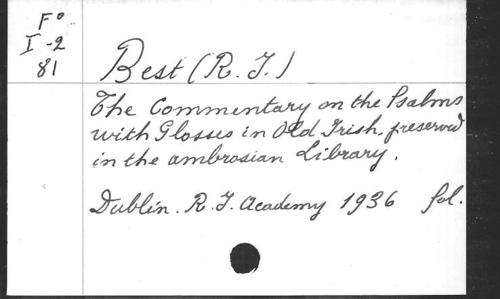 Fº
I-2
81
Best (R. J.)
The Commentary on the Psalms
with Glosses in Old Irish, preserved
in the ambrosian Library.
Dublin. R. J. academy 1936 fol.